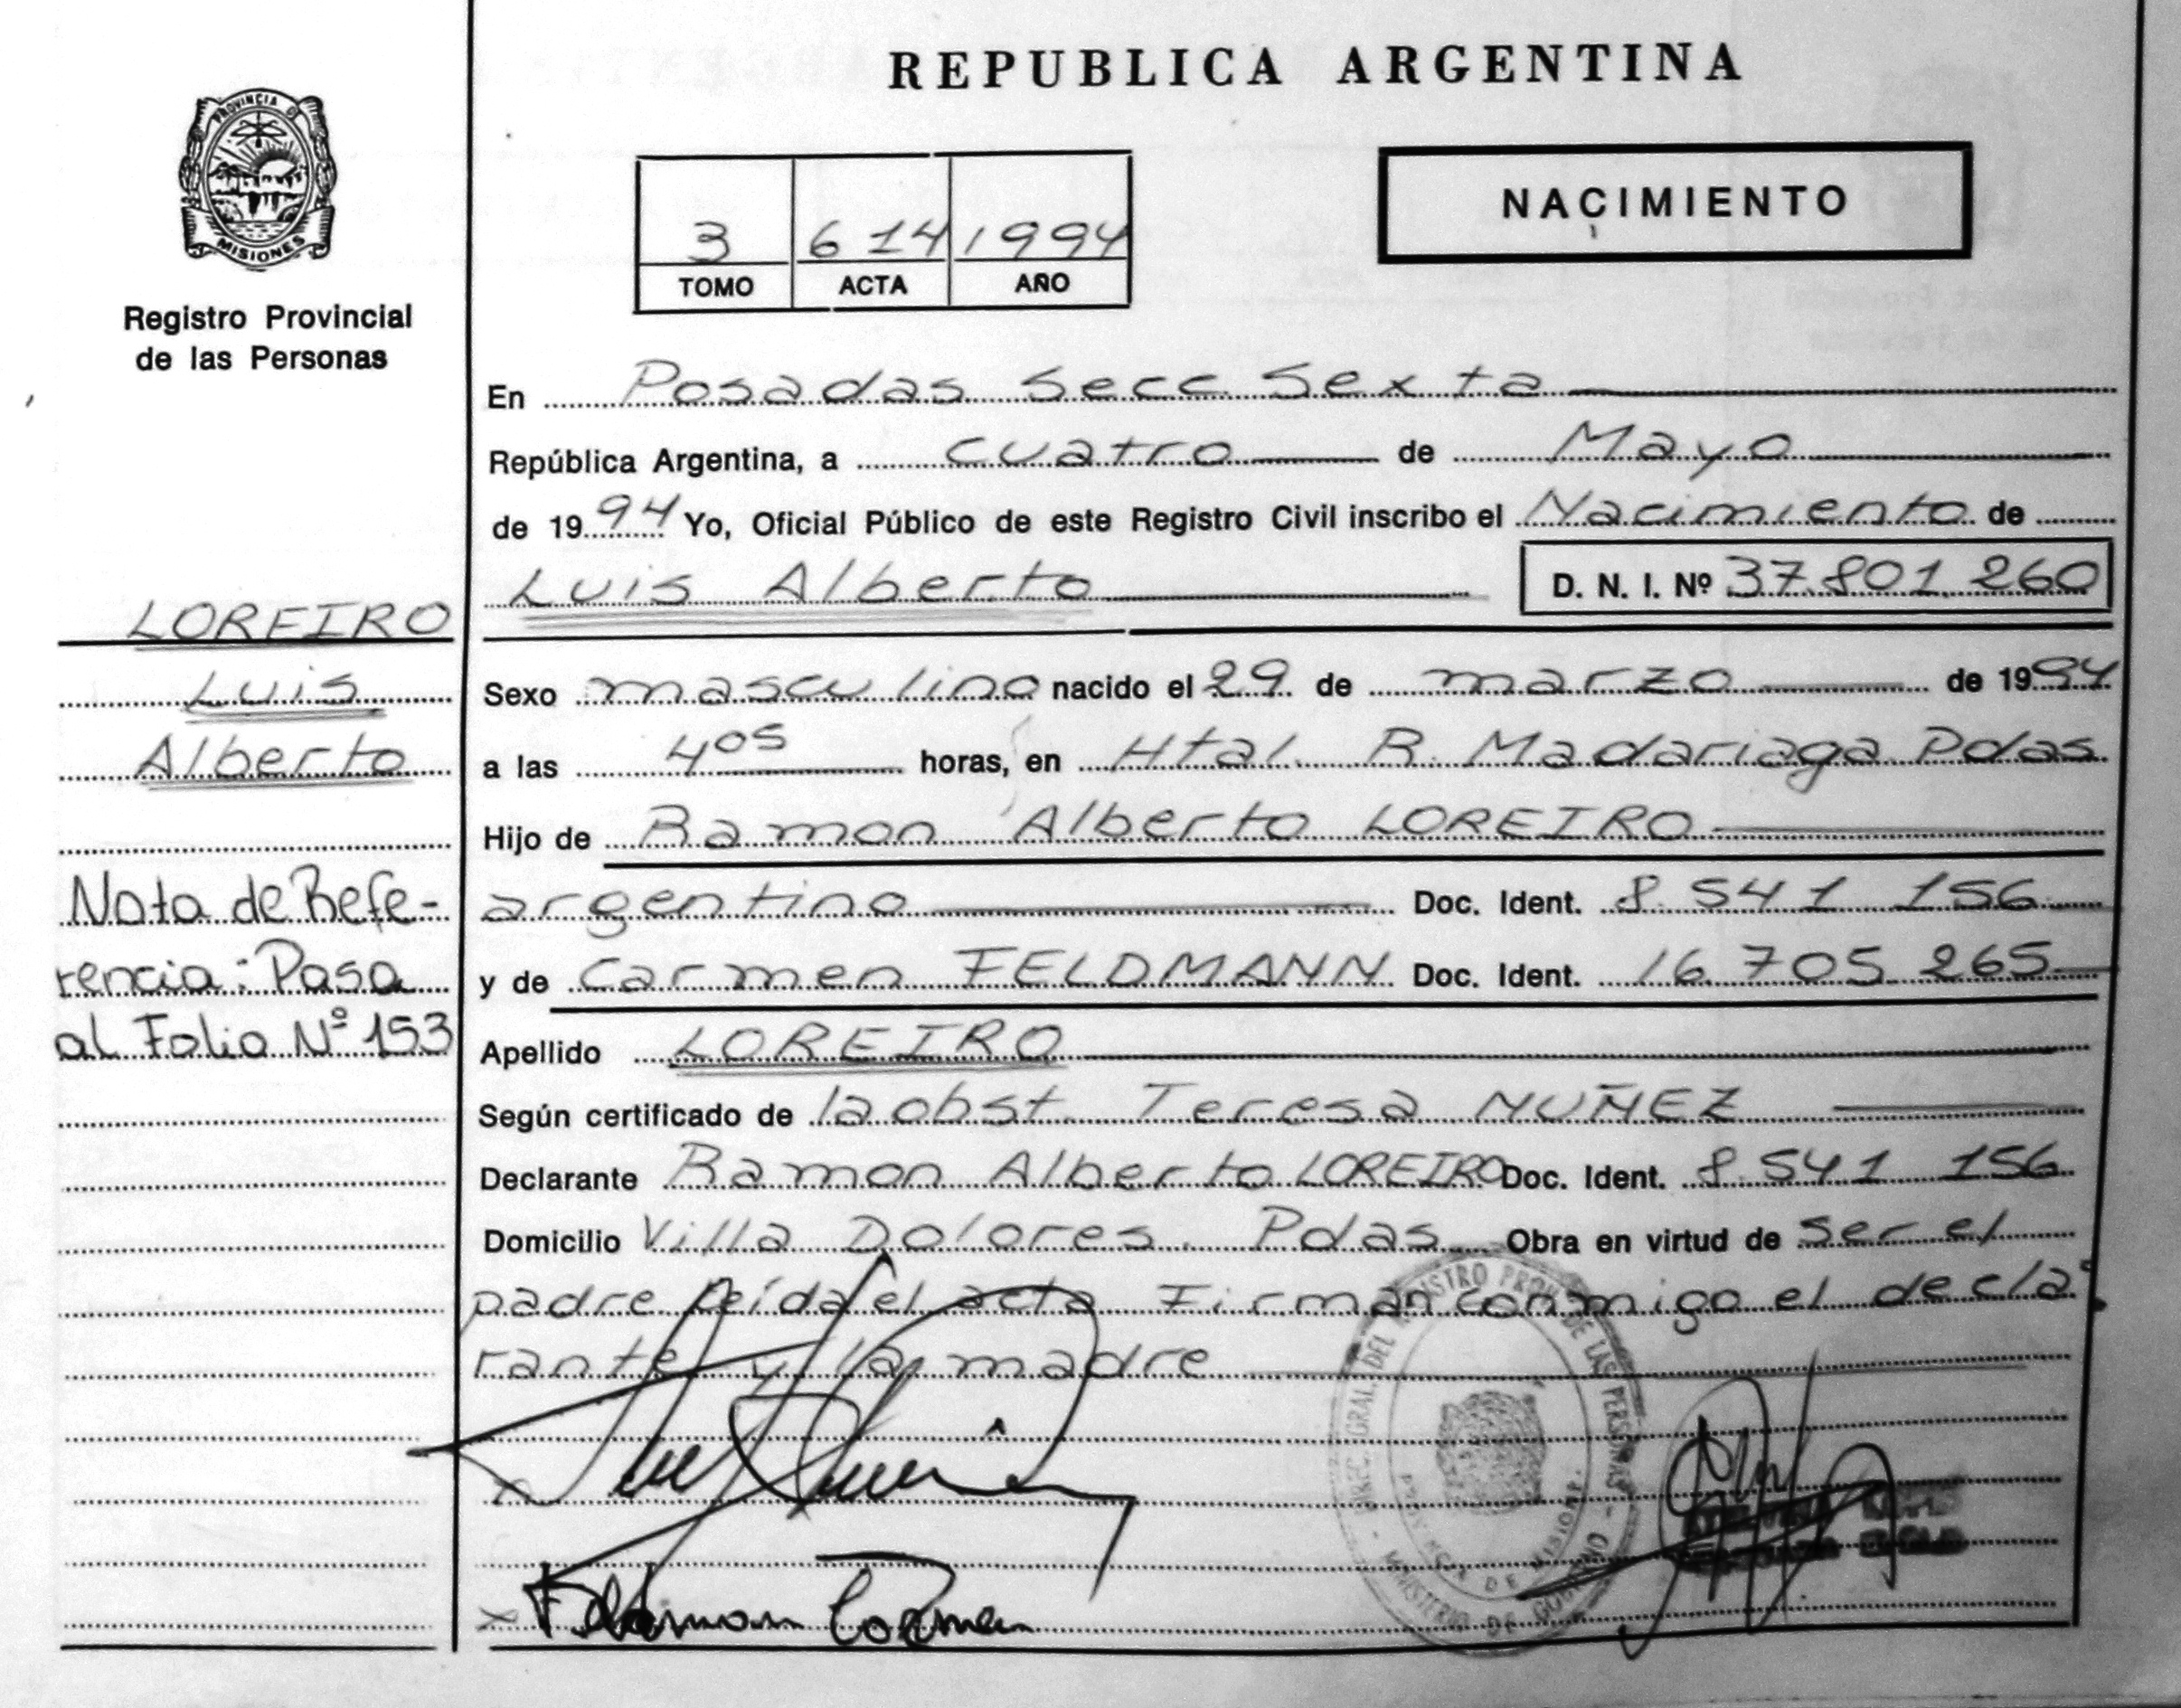 REPUBLICA ARGENTINA
PROVINCIA D
MISIONES
Registro Provincial
de las Personas
3 614 1994
TOMO ACTA AÑO
NACIMIENTO
En Posadas Secc Sexta
República Argentina, a cuatro de Mayo
de 1994 Yo, Oficial Público de este Registro Civil inscribo el Nacimiento de
Luis Alberto D. N. I. Nº 37.801.260
LOREIRO
Luis
Alberto
Nota de Refe-
rencia: Pasa
al Folio Nº 153
Sexo masculino nacido el 29 de marzo de 1994
a las 4 05 horas, en Htal. R. Madariaga Pdas.
Hijo de Ramon Alberto LOREIRO
argentino Doc. Ident. 8.541.156
y de Carmen FELDMANN Doc. Ident. 16.705.265
Apellido LOREIRO
Según certificado de la obst. Teresa NUÑEZ
Declarante Ramon Alberto LOREIRO Doc. Ident. 8.541.156
Domicilio Villa Dolores. Pdas. Obra en virtud de ser el
padre leída el acta Firman conmigo el decla
rante y la madre
DIREC. GRAL. DEL REGISTRO PROV. DE LAS PERSONAS - MINISTERIO DE GOBIERNO
PROVINCIA DE MISIONES
x
x Feldman Carmen